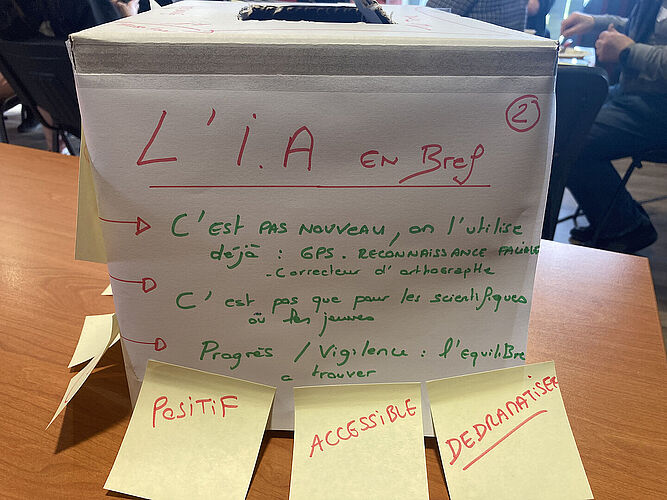 2
L'I.A EN BREF
C'EST PAS NOUVEAU, on l'utilise
déjà : GPS. RECONNAISSANCE FACIALE
- Correcteur d'orthographe
C'est pas que pour les scientifiques
ou les jeunes
Progrès / Vigilence : l'equiliBre
a trouver
POSITIF
ACCESSIBLE
DEDRAMATISER